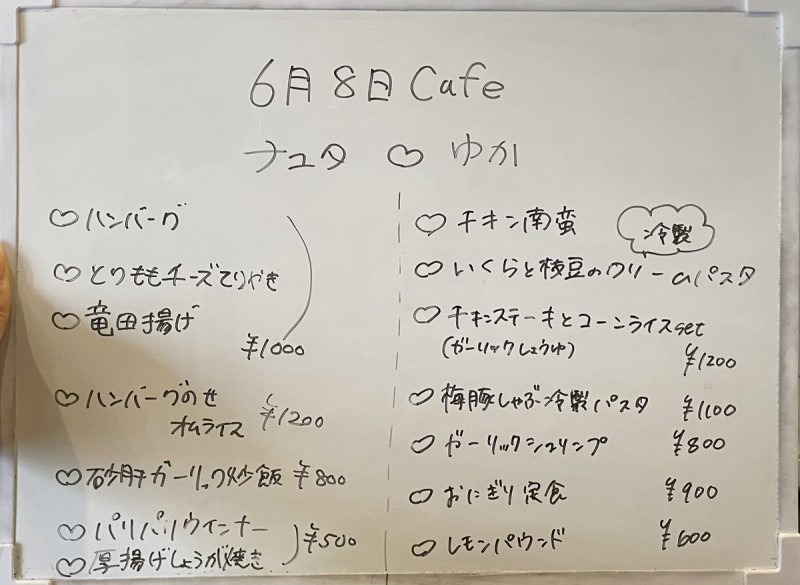 6月8日 Cafe
ナユタ ♡ ゆか
♡ ハンバーグ
♡ とりももチーズてりやき
♡ 竜田揚げ
¥1000
♡ ハンバーグのせ
オムライス ¥1200
♡ 砂肝ガーリック炒飯 ¥800
♡ パリパリウインナー
♡ 厚揚げしょうが焼き
¥500
♡ チキン南蛮
冷製
♡ いくらと枝豆のクリームパスタ
♡ チキンステーキとコーンライスset
(ガーリックしょうゆ) ¥1200
♡ 梅豚しゃぶ冷製パスタ ¥1100
♡ ガーリックシュリンプ ¥800
♡ おにぎり定食 ¥900
♡ レモンパウンド ¥600